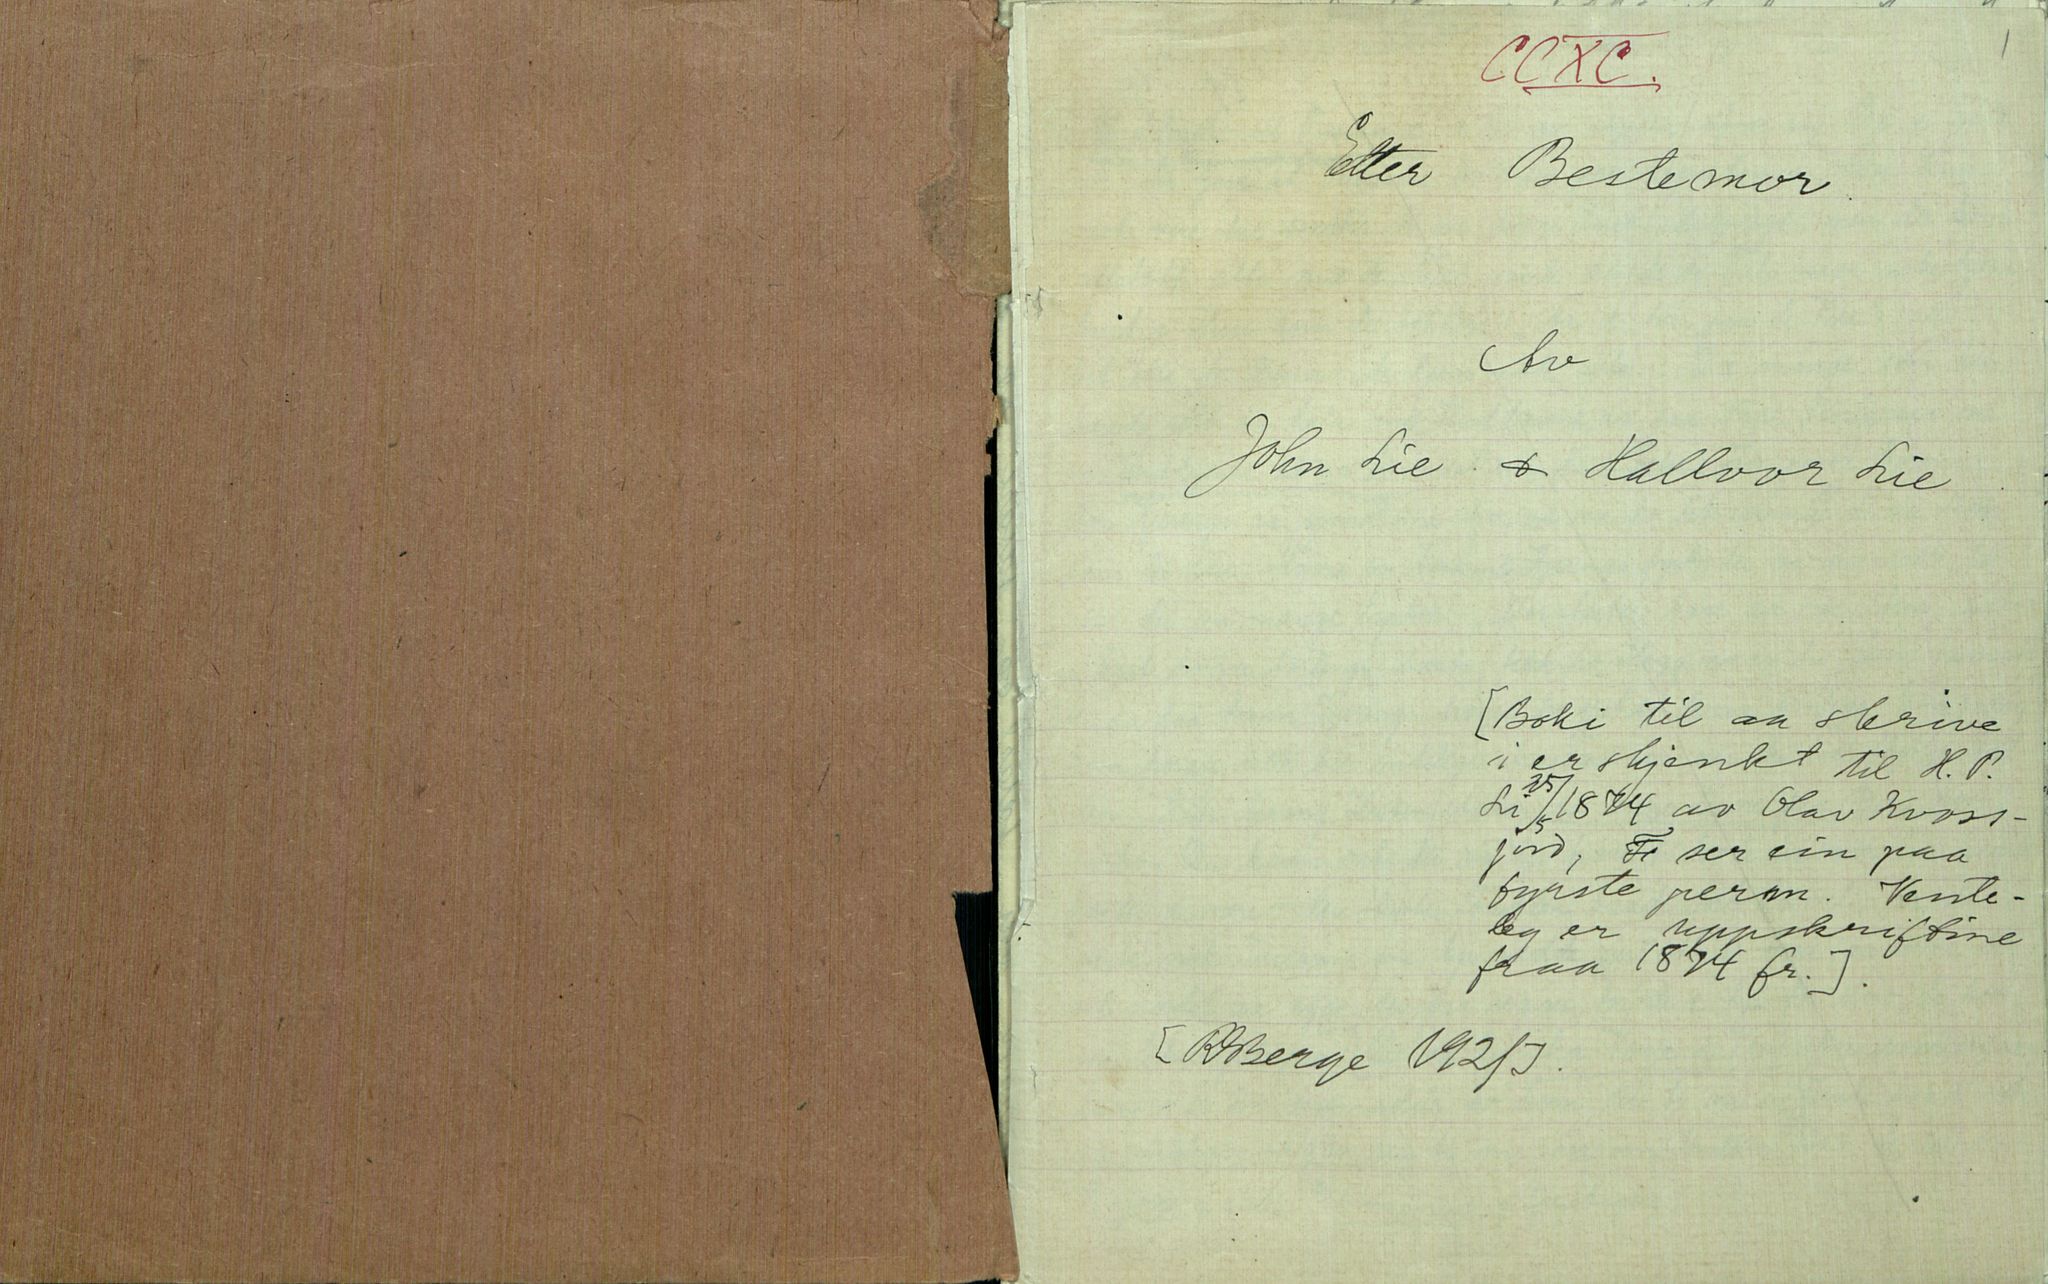 CCXC.
1
Etter Bestemor.
Av
John Lie & Hallvor Lie
[Boki til aa skrive
i er skjenkt til H. P.
Li 25/5 1874 av Olav Kvoss-
jord, ser ein paa
fyrste perm. Vente-
leg er uppskriftine
fraa 1874 fr.].
[RBerge 192].